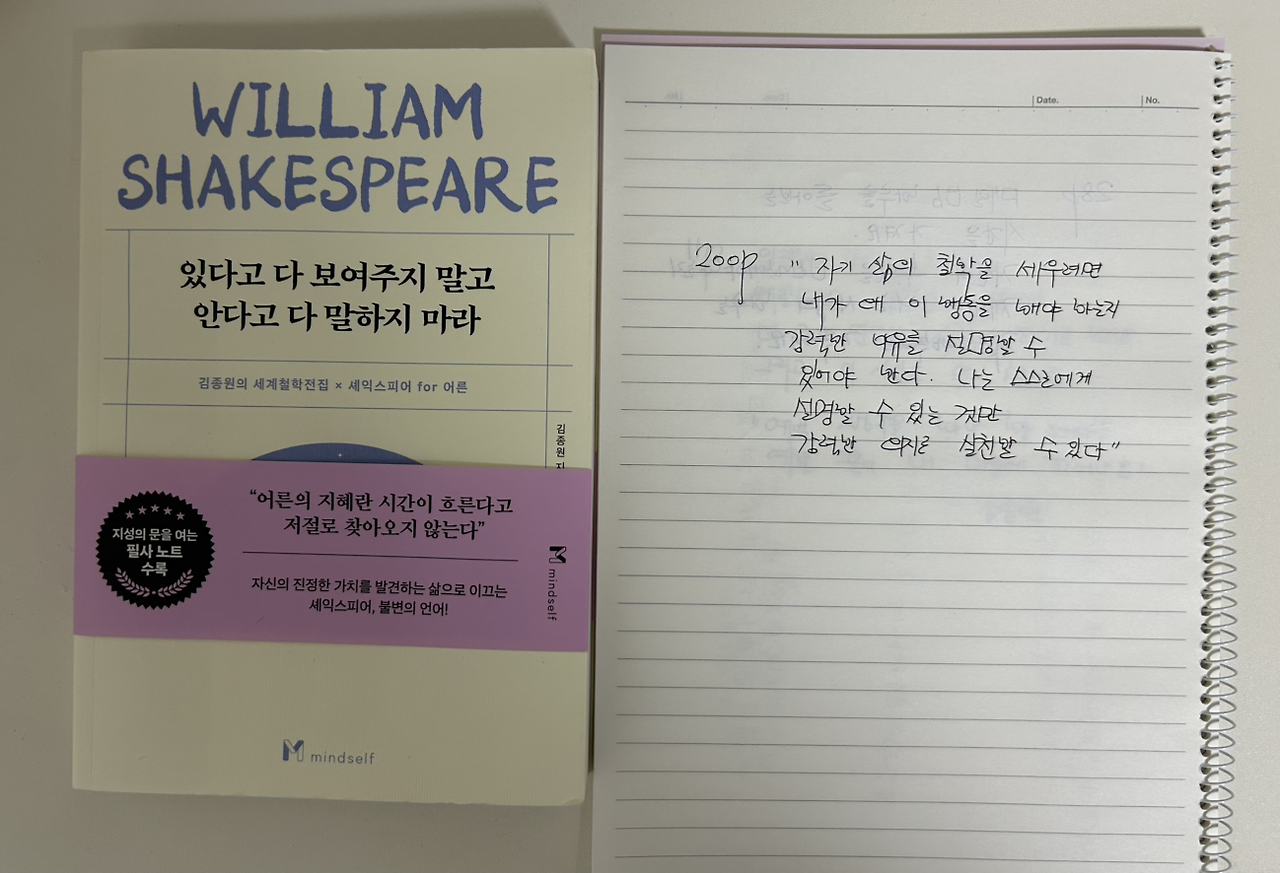 WILLIAM
SHAKESPEARE
있다고 다 보여주지 말고
안다고 다 말하지 마라
김종원의 세계철학전집 × 셰익스피어 for 어른
김종원 지
"어른의 지혜란 시간이 흐른다고
저절로 찾아오지 않는다"
지성의 문을 여는
필사 노트
수록
자신의 진정한 가치를 발견하는 삶으로 이끄는
셰익스피어, 불변의 언어!
mindself
mindself
Date.
No.
200p "자기 삶의 철학을 세우려면
내가 왜 이 행동을 해야 하는지
강력한 이유를 설명할 수
있어야 한다. 나는 스스로에게
설명할 수 있는 것만
강력한 의지로 실천할 수 있다"